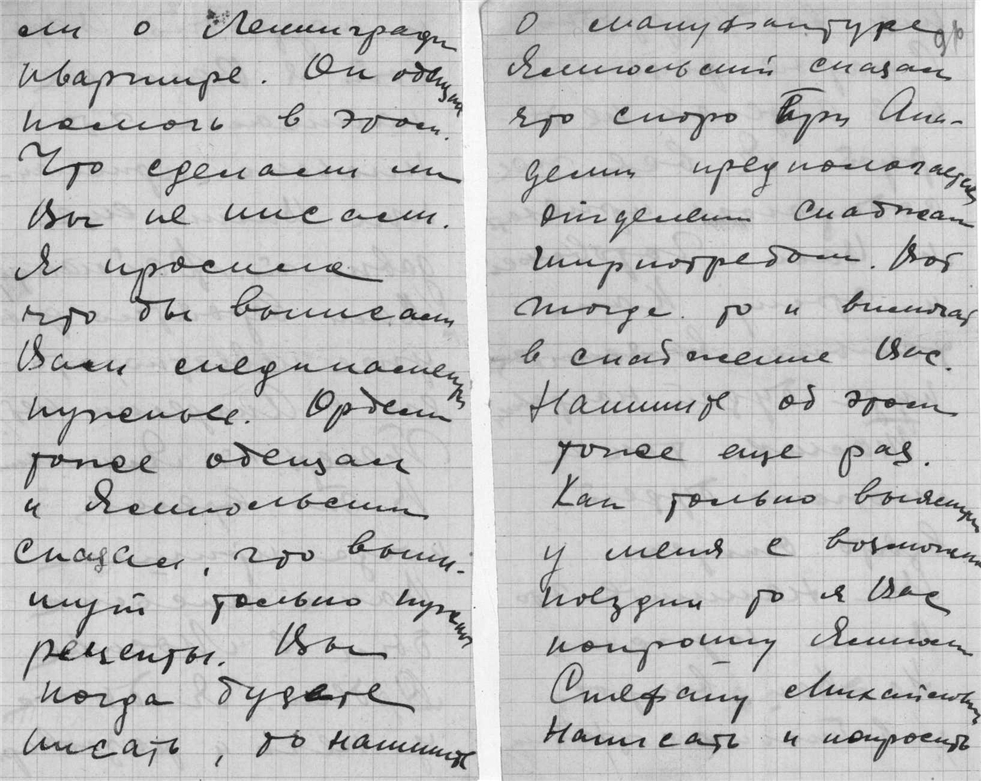 ли о Ленингради
квартире. Он обещал
помочь в этом.
Что сделали ли
Вы не писали.
Я просила
что бы выписали
Вам
нужные. Орбели
тоже обещал
и
сказал, что выпи-
шут только нужны
рецепты. Вы
когда будете
писать, то напишите
о мануфактуре
сказал
что скоро при Ака-
демии предполагается
отделение снабжат
ширпотребом. Вот
тогда то и включат
в снабжение Вас.
Напишите об этом
тоже еще раз.
Как только выяснится
у меня с возможн
поездки то я Вас
попрошу
Стефану Михайловичу
Написать и попросить